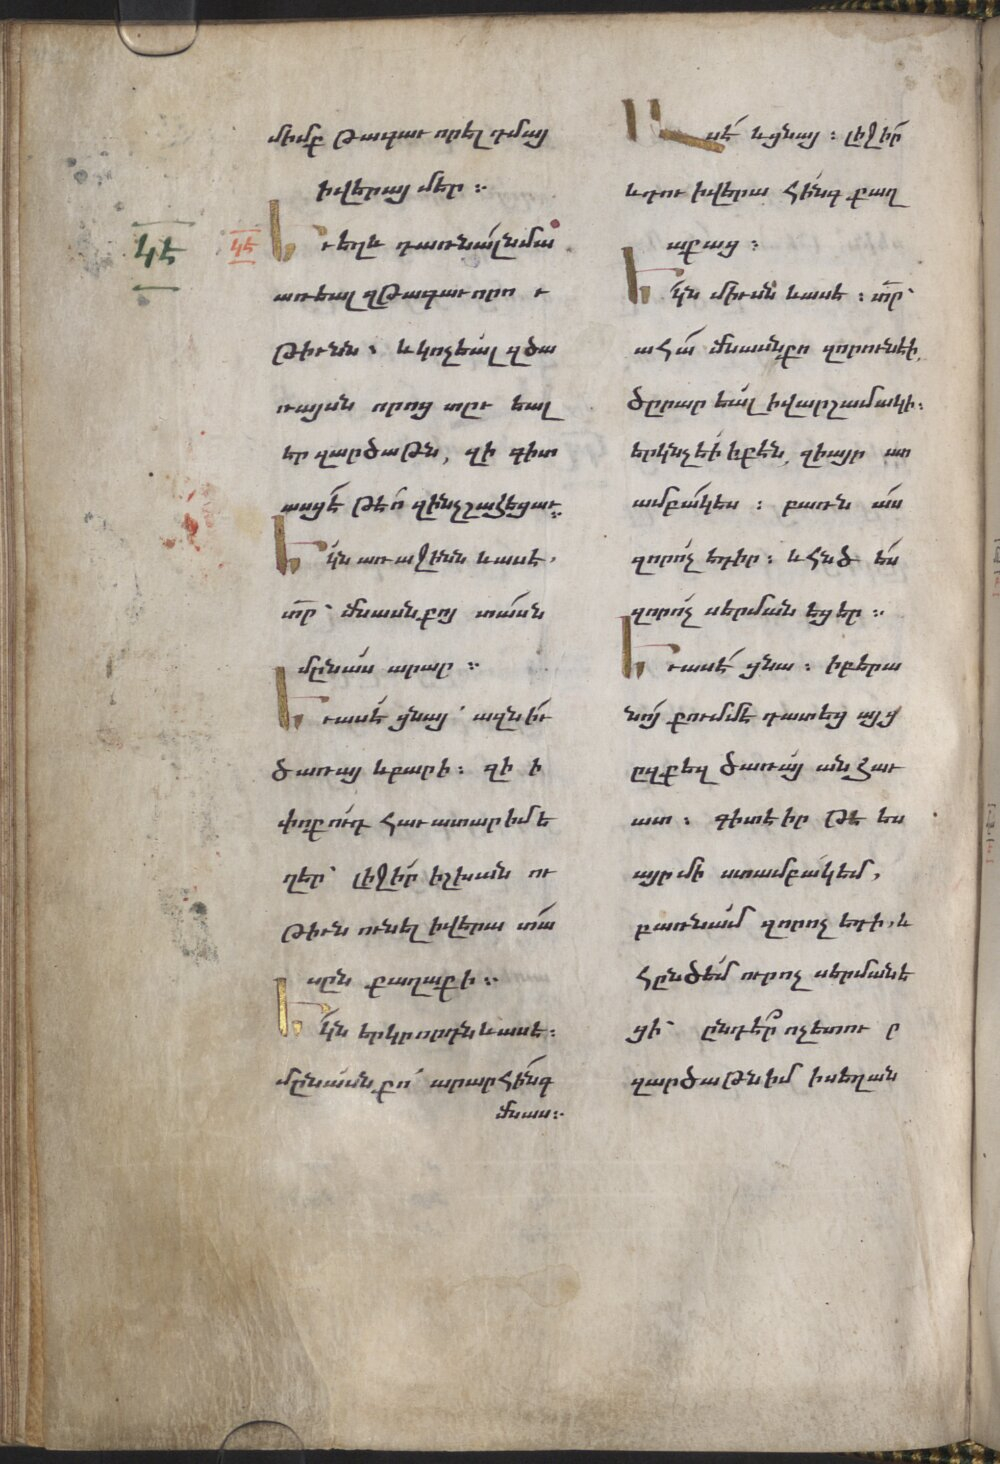 միմք թագաւորել դմայ
իվերայ մեր ։
ԿԷ
ԿԵ
Եւեղև դառնալնմա
առեալ զթագաւորու
թիւնն ։ և կոչեալ զծա
ռայսն որոց տըւեալ
էր զարծաթն, զի գիտ
ասցէ թեո զինչշահեցաւ ։
Եկն առաջինն և ասե ,
տր՝ մնասնքոյ տասն
մընաս արար ։
Եւասէ ցնայ՝ ազնիւ
ծառայ և բարի ։ զի ի
փոքուդ հաւատարիմ ե
ղեր՝ լիջիր իշխանու
թիւն ունել իվերա տա
սըն քաղաքի ։
Եկն երկրորդն և ասե ։
մընասն քո՝ արար հինգ
մնաս ։
Ասէ և ցնայ ։ լիջիր
և դու իվերա հինգ քաղ
աքաց ։
Եկն միւսն և ասե ։ տր՝
ահա մնասնքո զորունէի
ծըրար եալ իվարշամակի ։
երկնչեի իքեն, զիայր ստ
ամբակես ։ բառն աս
զորոչ եդիր ։ և հնձ ես
զորոչ սերման եցեր ։
Եւասէ ցնա ։ իբերա
նոյ քումմե դատեց այց
ըզքեզ ծառայ անհաւ
ատ ։ գիտեիր թե ես
այր մի ստամբակեմ ,
բառնամ զորոչ եդի , և
հընձեմ ուրոչ սերմանե
ցի՝ ընդեր ոչետուր
զարծաթնիմ իսեղան